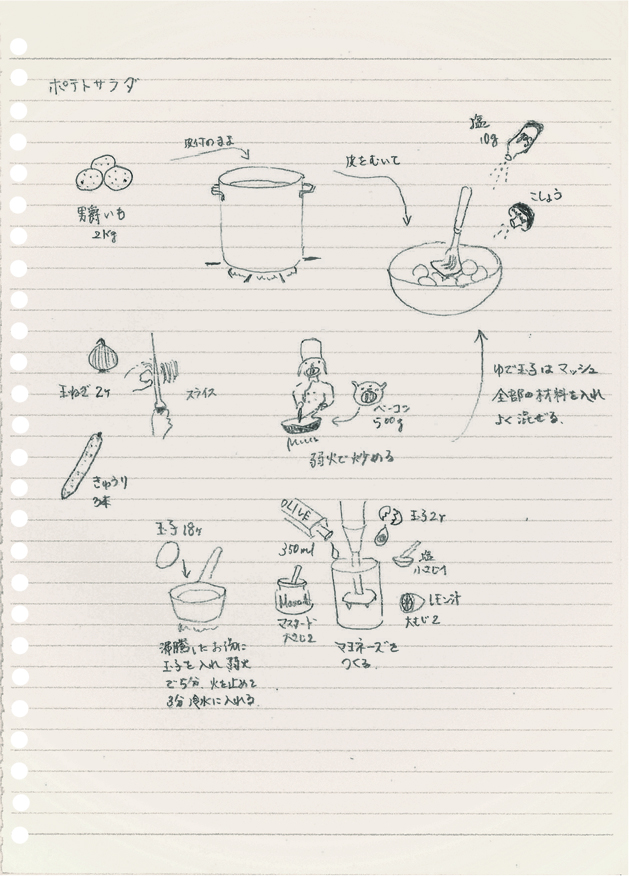 ポテトサラダ
皮付のまま
男爵いも
2Kg
皮をむいて
塩
10g
こしょう
玉ねぎ 2ヶ
スライス
きゅうり
3本
ベーコン
500g
弱火で炒める
ゆで玉子はマッシュ
全部の材料を入れ
よく混ぜる。
玉子 18ヶ
沸騰したお湯に
玉子を入れ 弱火
で5分 火を止めて
3分 冷水に入れる。
OLIVE
350ml
マスタード
大さじ2
玉子2ヶ
塩
小さじ1
レモン汁
大さじ2
マヨネーズを
つくる。